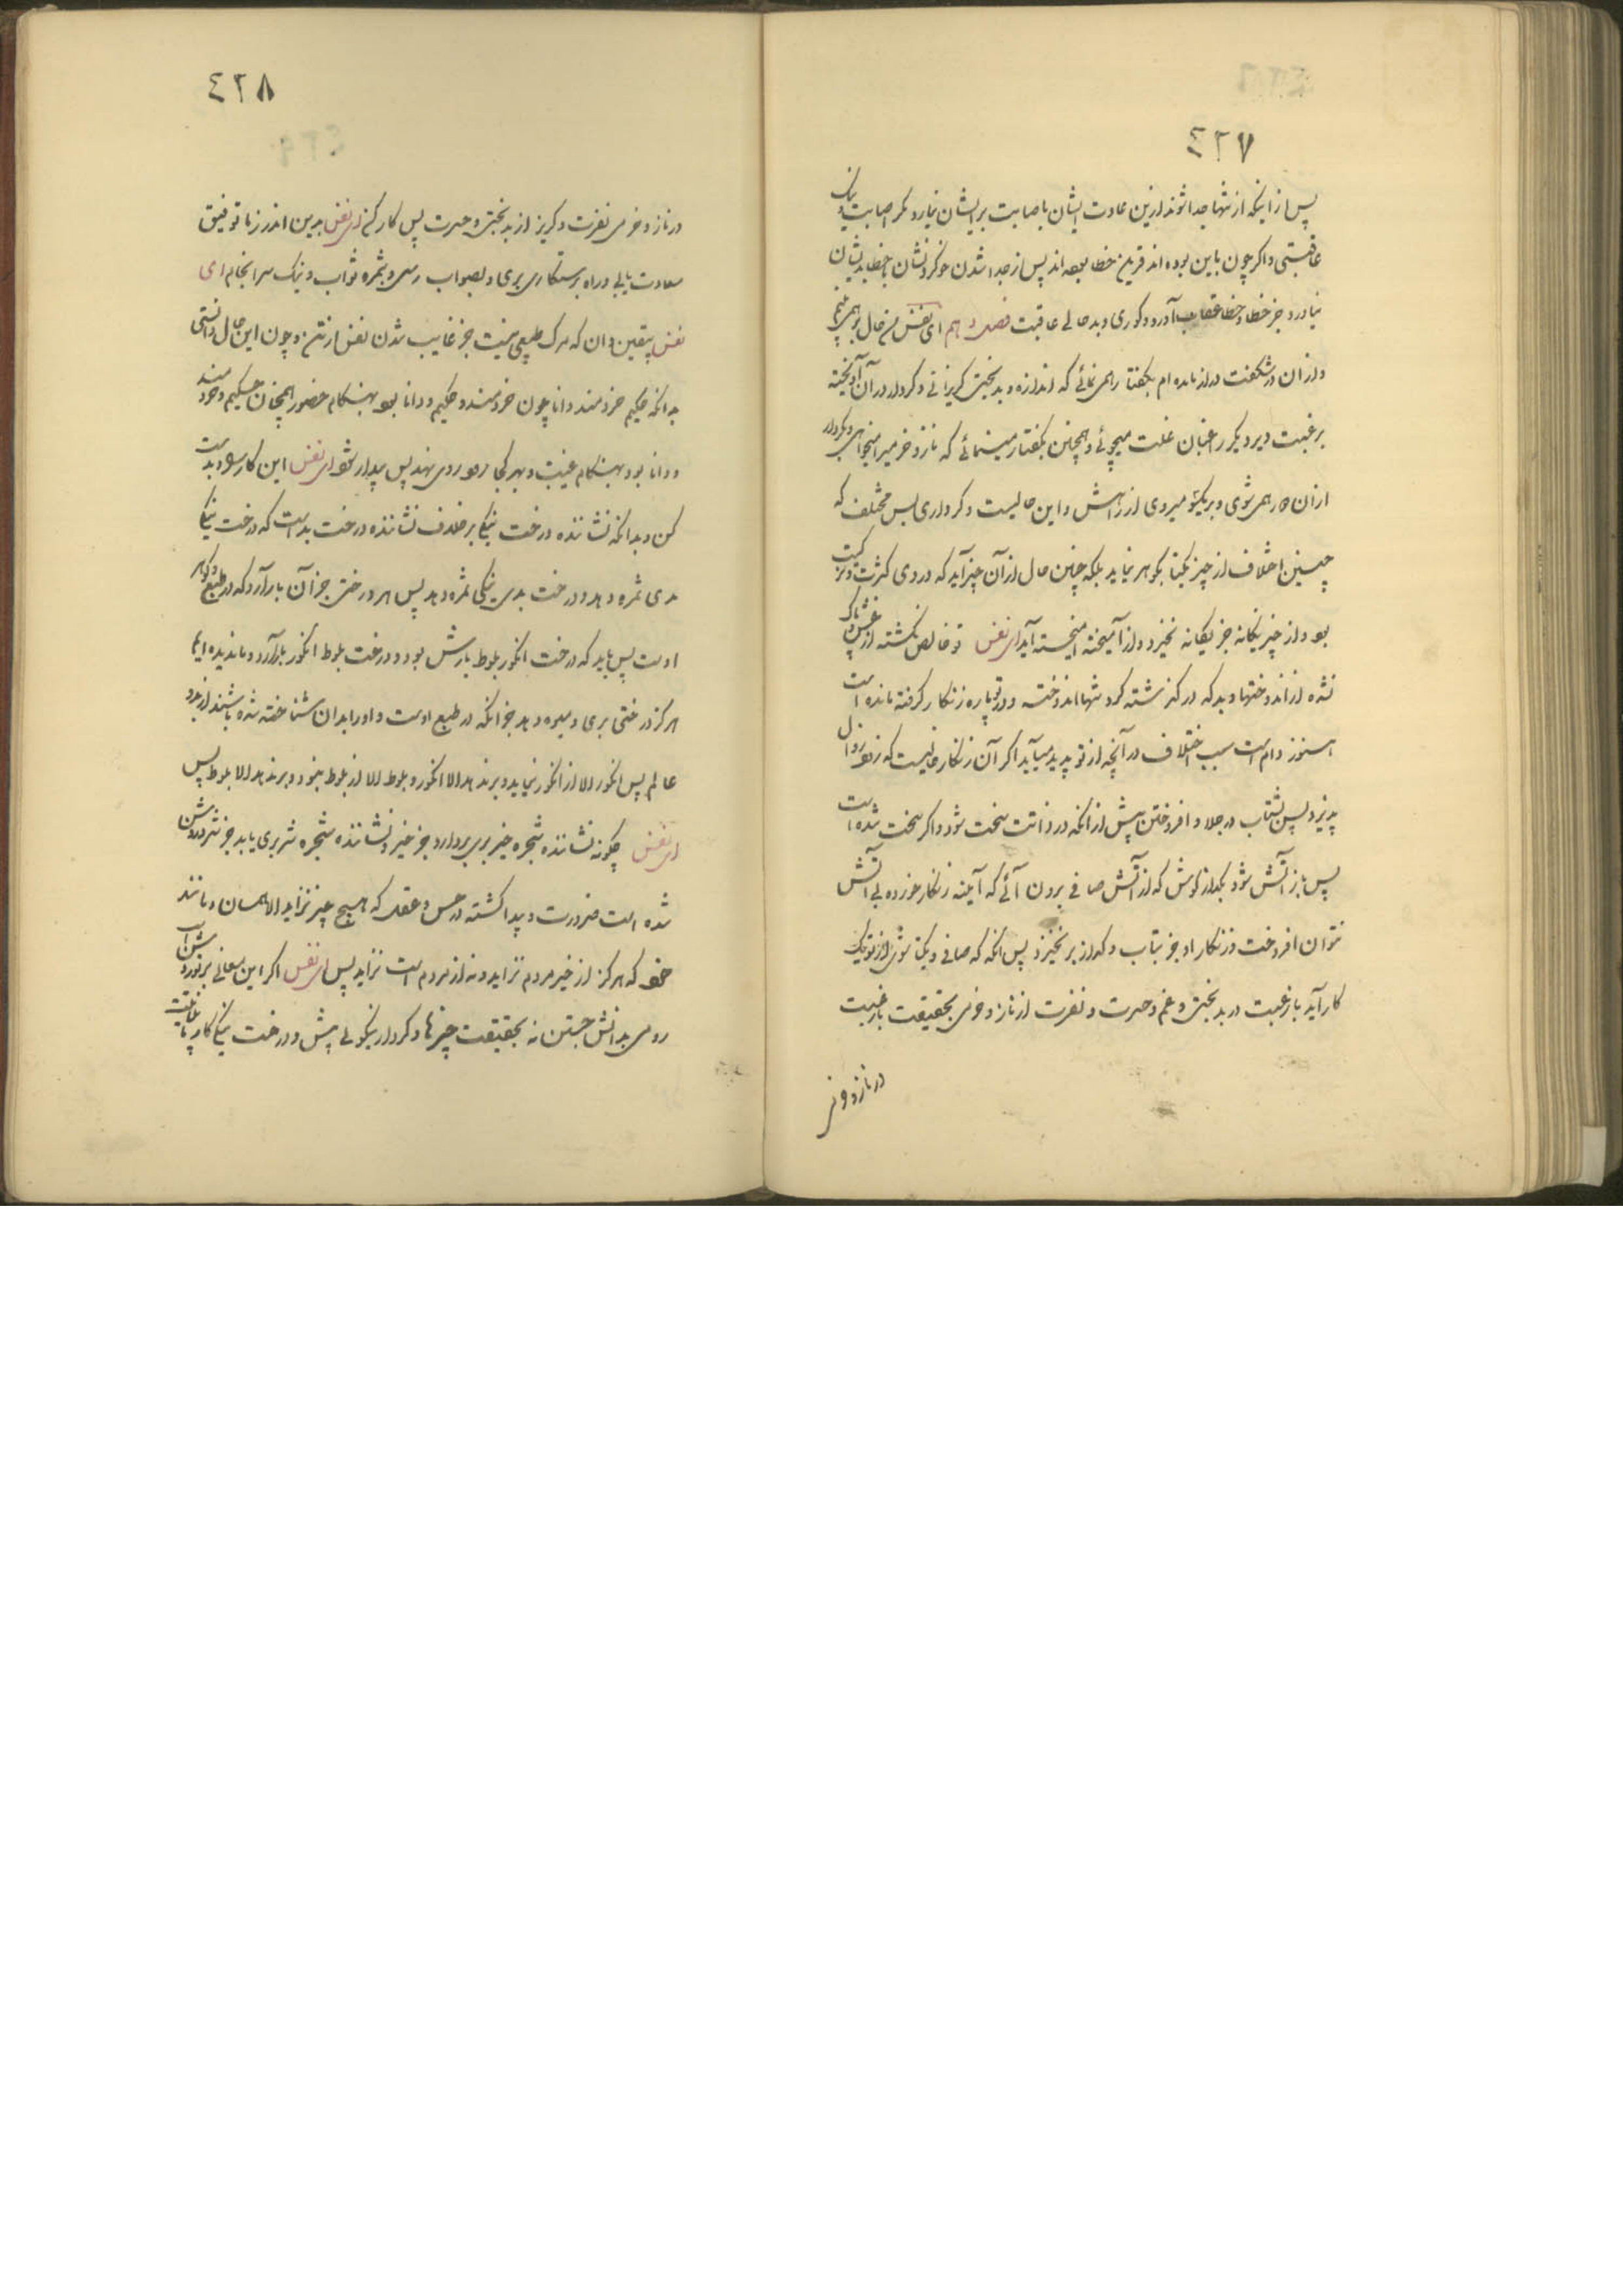 ٤٢٧
پس از اینکه از تنها جدا شوند ازین عادت ایشان باصابت بر ایشان نیارد مگر اصابت و نیک
عاقبتی و اگر چون باین بوده‌اند قرین خطا بوده‌اند پس از جدا شدن خو کردنشان بخطا بدیشان
نیاورد جز خطا و خطا عقاب آورد و کوری و بد حالی عاقبت فصل دهم ای نفس من حال تو همی بینم
و از آن در شگفت دراز مانده‌ام بگفتار همی نمائی که از اندازه و بدبختی گریزانی و کردار در آن آویخته
برغبت دیر دیگر راغبان غلت میجوئی و همچنین بگفتار مینمائی که ناز و خرمی را میخواهی و بکردار
ازان در همی شوی و بر یکسو میروی از راهش و این حالیست و کرداری بس مختلف که
چنین اختلاف از چیز یکتا بگوهر نیاید بلکه چنین حال از آن چیز آید که در وی کثرت و ترکیب
بود و از چیز یگانه جز یگانه نخیزد و از آمیخته آمیخته آید ای نفس تو خالص نگشته از غش و پاک
نشده از اندوختها و بد که در گذشته گرد تنها اندوخته و در تو پاره زنگار گرفته مانده است
هنوز و ام است سبب اختلاف در آنچه از تو پدید میآید اگر آن زنگار خالیست که زود زوال
پذیرد پس بشتاب در جلا و افروختن پیش از آنکه در ذاتت سخت شود و اگر سخت شده است
پس باز آتش شو و بگداز کوش که از آتش صافی برون آئی که آینه زنگار خورده بی آتش
نتوان افروخت و زنگار او جز بتاب و گداز بر نخیزد پس آنگه که صافی و یکتا شوی از تو یک
کار آید یا رغبت در بدبختی و غم و حسرت و نفرت از ناز و خرمی بحقیقت یا رغبت
در ناز و خر
٤٢٨
در ناز و خرمی نفرت و گریز از بدبختی و حسرت پس کار کن ای نفس بدین اندرزها توفیق
سعادت یابی و راه برستگاری بری و بصواب رسی و بثمره ثواب و نیک سرانجام ای
نفس بیقین دان که مرگ طبیعی نیست جز غایب شدن نفس از تن و چون این حال دانستی
بدانکه حکیم خردمند دانا چون خردمند و حکیم و دانا بود بهنگام حضور همچنان حکیم و خردمند
و دانا بود بهنگام غیبت و بهر کجا رود روی نهد پس بیدار شو ای نفس این کار سود بدست
کن و بدانکه نشاننده درخت نیکی بر خلاف نشاننده درخت بدیست که درخت نیکی
بدی ثمره دهد و درخت بدی نیکی ثمره دهد پس هر درختی جز آن بار آرد که در طبع و گوهر
اوست پس باید که درخت انگور بلوط بارش بود و درخت بلوط انگور بار آرد و ما ندیده‌ایم
هرگز درختی بری و میوه دهد جز آنکه در طبع اوست و او را بدان شناخته شده باشند از مردم
عالم پس انگور الا از انگور نیاید و بر ندهد الا انگور و بلوط الا از بلوط نبود و بر ندهد الا بلوط پس
ای نفس چگونه نشاننده شجره خیر بری بردارد جز خیر و نشاننده شجره شر بری یابد جز شر و روشن
شده است ضرورت و پیدا گشته در حس و عقل که هیچ چیز نزاید الا همسان و مانند
خود که هرگز از خیر مردم نزاید و نه از مردم است نزاید پس ای نفس اگر این معانی بر تو روشن است
روی بدانش جستن نه بحقیقت چیزها و کردار نیکو بی بیش و درخت نیکی کار یا عاقبت